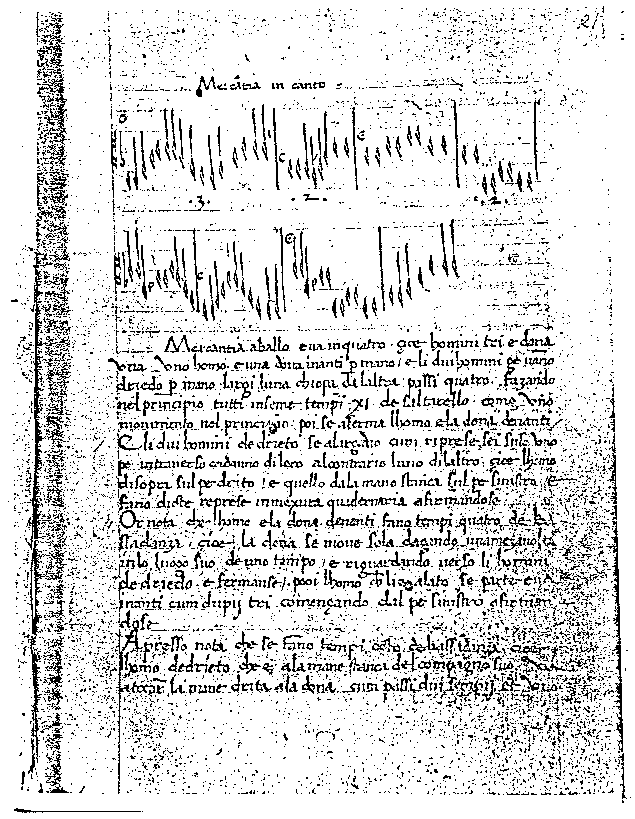 21
Mercãtia in canto
.3. .2. .2.
Mercantia aballo e va in quatro cioe homini tri e dona
una Uno homo e una dona inanti p mano e li dui homini ge vano
driedo p mano largi luna chopia di laltra passi quatro fazando
nel principio tutti insieme tempi XI de saltarello como uno
moviminto nel principio poi se aferma lhomo e la dona denanti
E li dui homini de drieto se alargano cum riprese sei sul uno
pe intraverso andando di loro al contrario luno di laltro cioe lhomo
di sopra sul pe drito e quello da la mano stanca sul pe sinistro e
fano dicte represe in mexura quadernaria afirmandose
Or nota che lhomo e la dona denenti fano tempi quatro de ba
sadanza cioe la dona se move sola dagando una meza volta
in lo luogo suo de uno tempo e riguardando verso li homini
de driedo e fermanse poi lhomo se parte
inanti cum dupij tri començando dal pe sinistro afirman
dose
Apresso nota che se fano tempi octo de bassadanza cioe
lhomo dedrieto che e ala mane stanca del compagno suo
a tochar la mane drita a la dona cum passi dui sempij